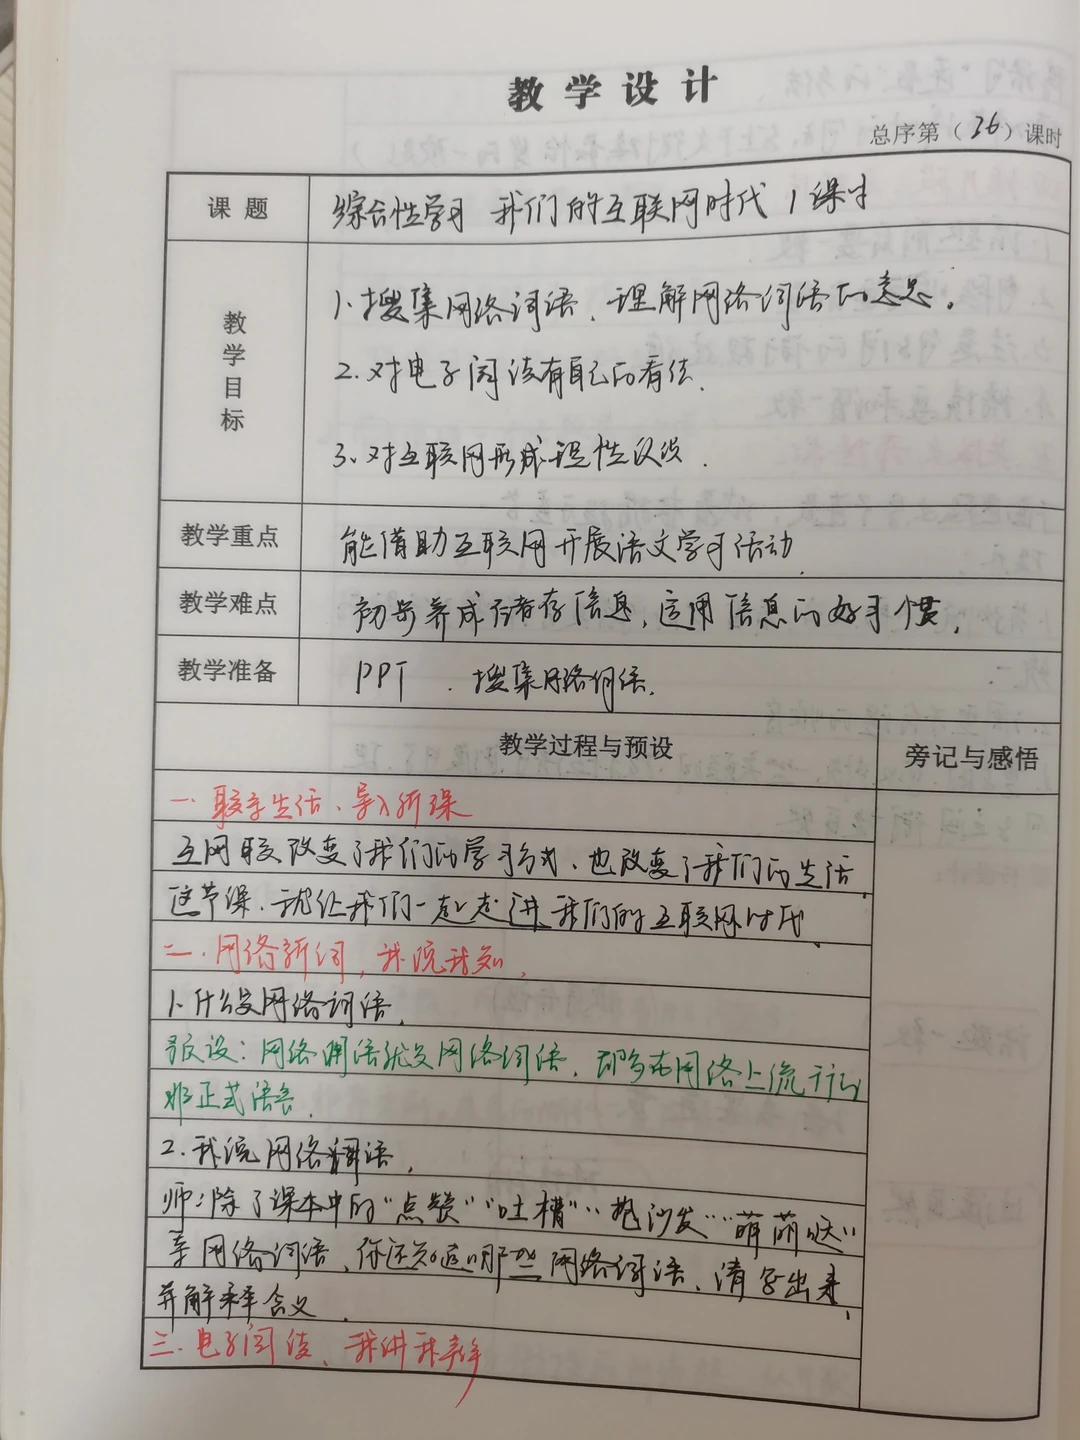 教学设计
总序第（36）课时
课题 综合性学习 我们的互联网时代 1课时
教学目标
1、搜集网络词语、理解网络词语的意思。
2.对电子阅读有自己的看法.
3、对互联网形成理性认识.
教学重点 能借助互联网开展语文学习活动.
教学难点 初步养成 存信息、运用信息的好习惯.
教学准备 PPT . 搜集网络词语.
教学过程与预设 旁记与感悟
一.联系生活、导入新课
互网联改变了我们的学习方式、也改变了我们的生活.
这节课.就让我们一起走进我们的互联网时代.
二.网络新词,我说我知.
1.什么是网络词语.
预设:网络用语就是网络词语.即多在网络上流行的
非正式语言.
2.我说网络词语.
师:除了课本中的"点赞""吐槽""抢沙发""萌萌哒"
等网络词语、你还知道哪些网络词语、请写出来,
并解释含义.
三.电子阅读、我讲我辩